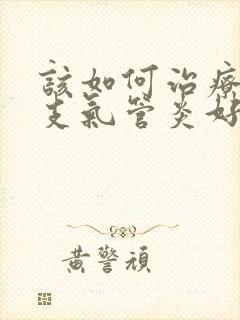 該如何治療
支氣管炎好
黃警頑